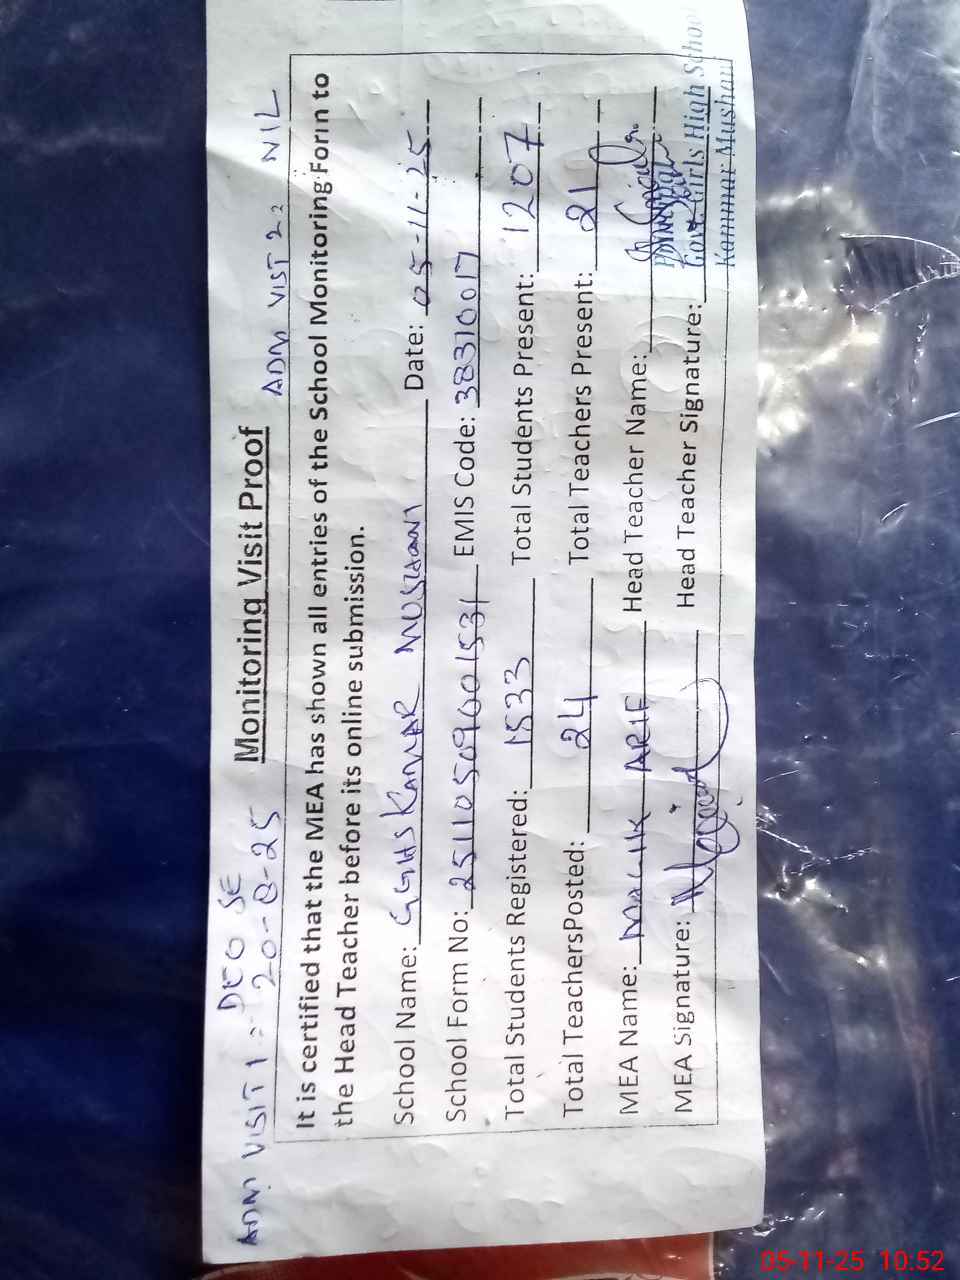 ADM VISIT 1:- DEO SE
20-8-25
ADM VIST 2: NIL
Monitoring Visit Proof
It is certified that the MEA has shown all entries of the School Monitoring Form to
the Head Teacher before its online submission.
School Name: GGHS KAMAR MUSHANI Date: 05-11-25
School Form No: 251105096001531 EMIS Code: 38310017
Total Students Registered: 1533 Total Students Present: 1207
Total TeachersPosted: 24 Total Teachers Present: 21
MEA Name: MALIK ARIF Head Teacher Name:
MEA Signature: Head Teacher Signature:
Govt. Girls High School
Kammar Mushani
05-11-25 10:52